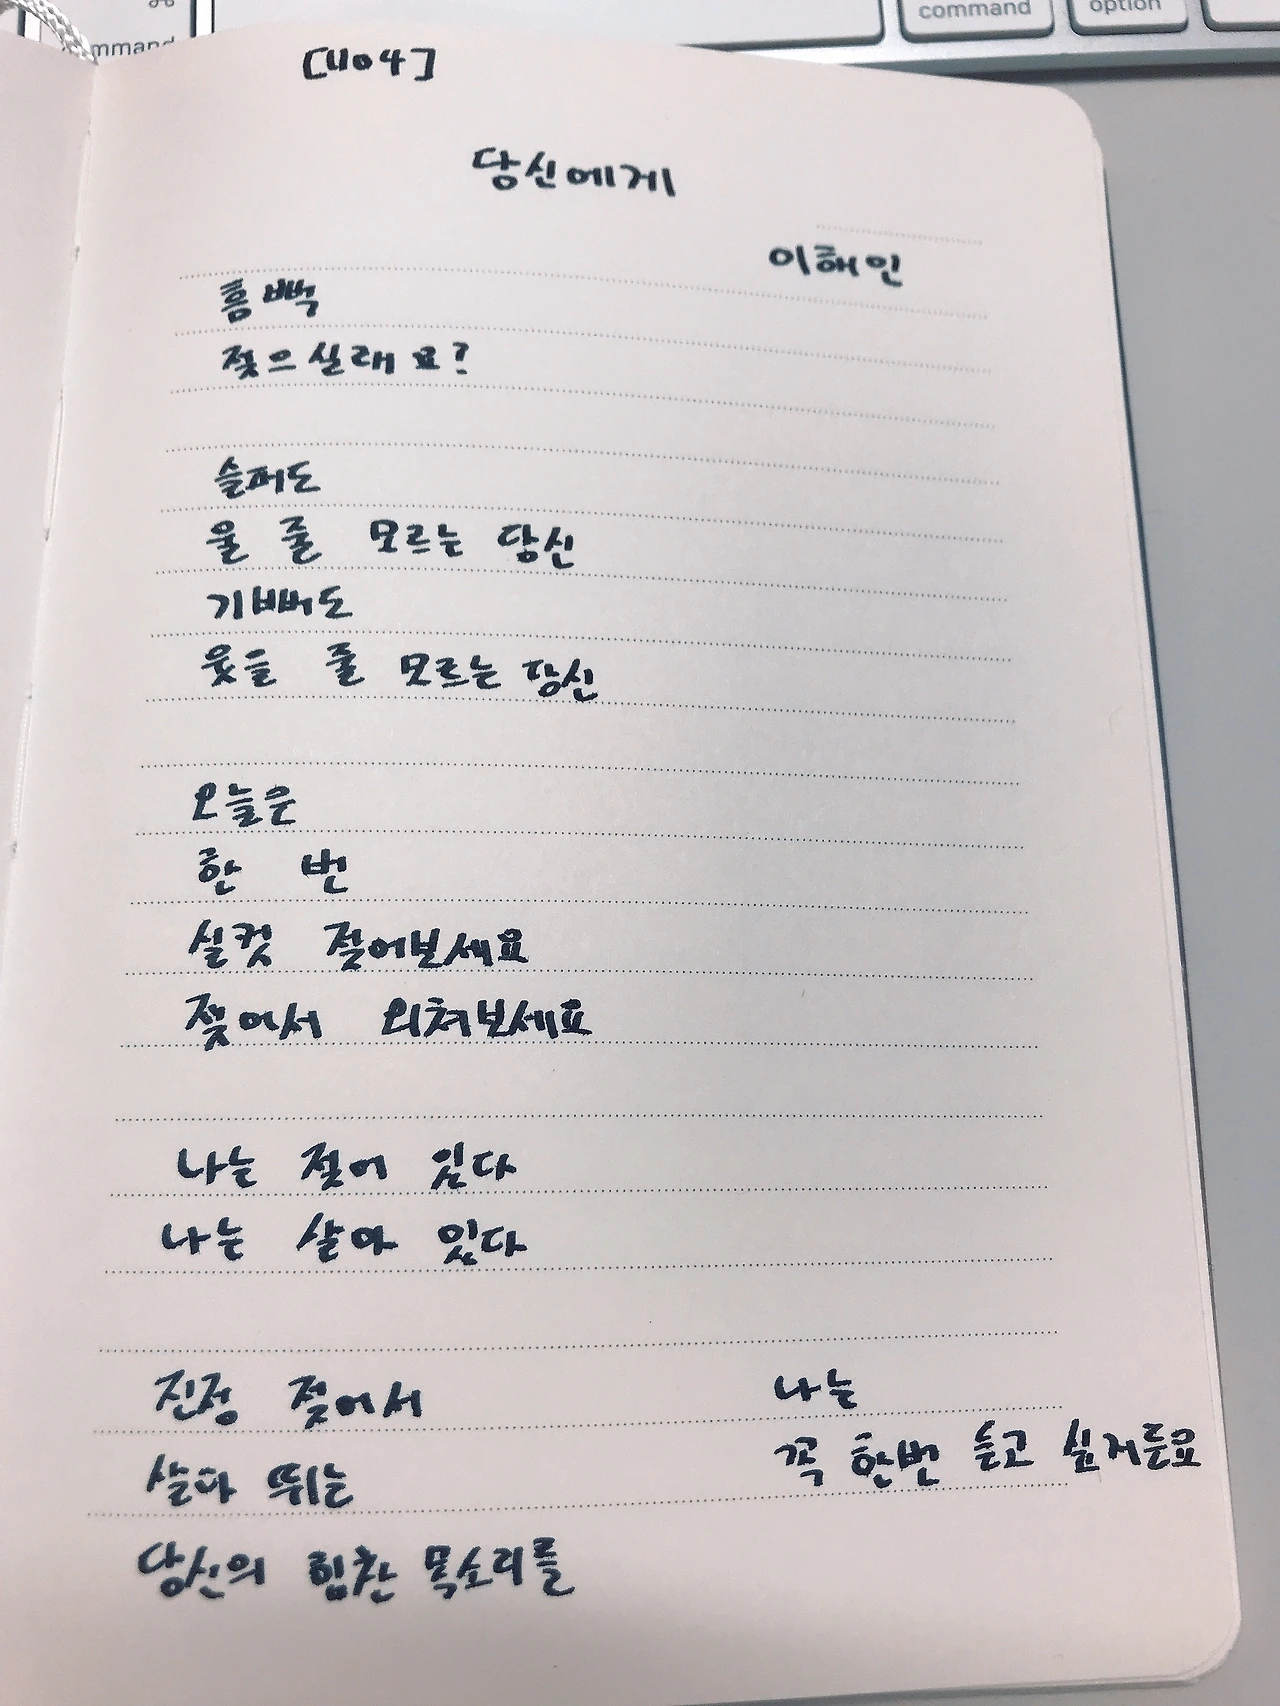 command
option
당신에게
이해인
흠뻑
젖으실래요?
슬퍼도
울 줄 모르는 당신
기뻐도
웃을 줄 모르는 당신
오늘은
한 번
실컷 젖어보세요
젖어서 외쳐보세요
나는 젖어 있다
나는 살아 있다
진정 젖어서
살아 뛰는
당신의 힘찬 목소리를
나는
꼭 한번 듣고 싶거든요